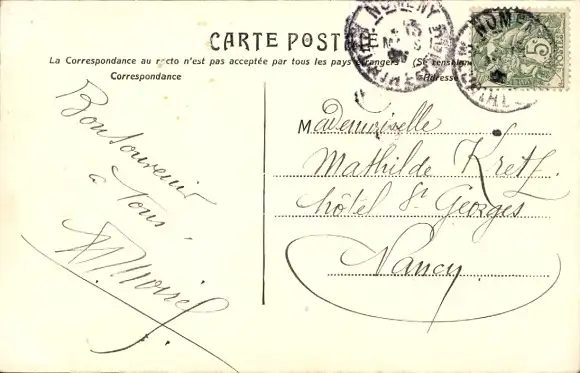 CARTE POSTALE
La Correspondance au recto n'est pas acceptée par tous les pays étrangers (Se renseigner
Correspondance
Adresse
NOMENY
NOMENY
5
Bon souvenir
à tous.
Mademoiselle
Mathilde Kretz.
hôtel St Georges
Nancy.